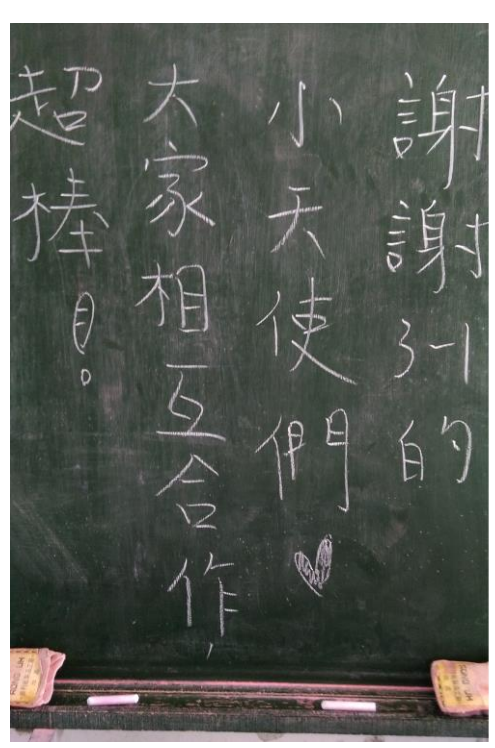 謝謝3-1的
小天使們♥
大家相互合作,
超棒!